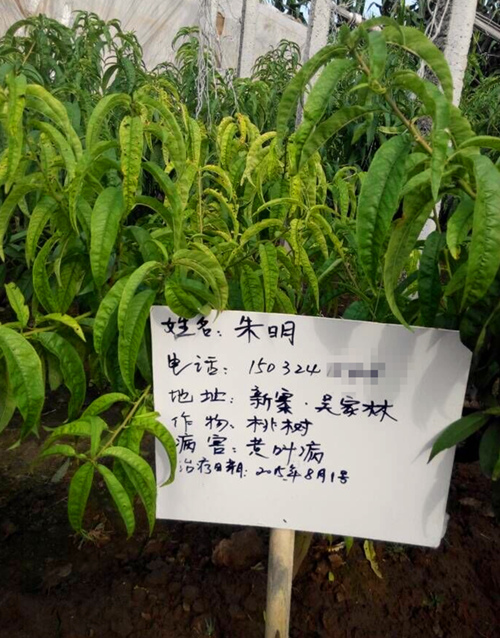 姓名: 朱明
电话: 150324
地址: 新寨·吴家林
作物: 桃树
病害: 黄叶病
治疗日期: 2015年8月1号